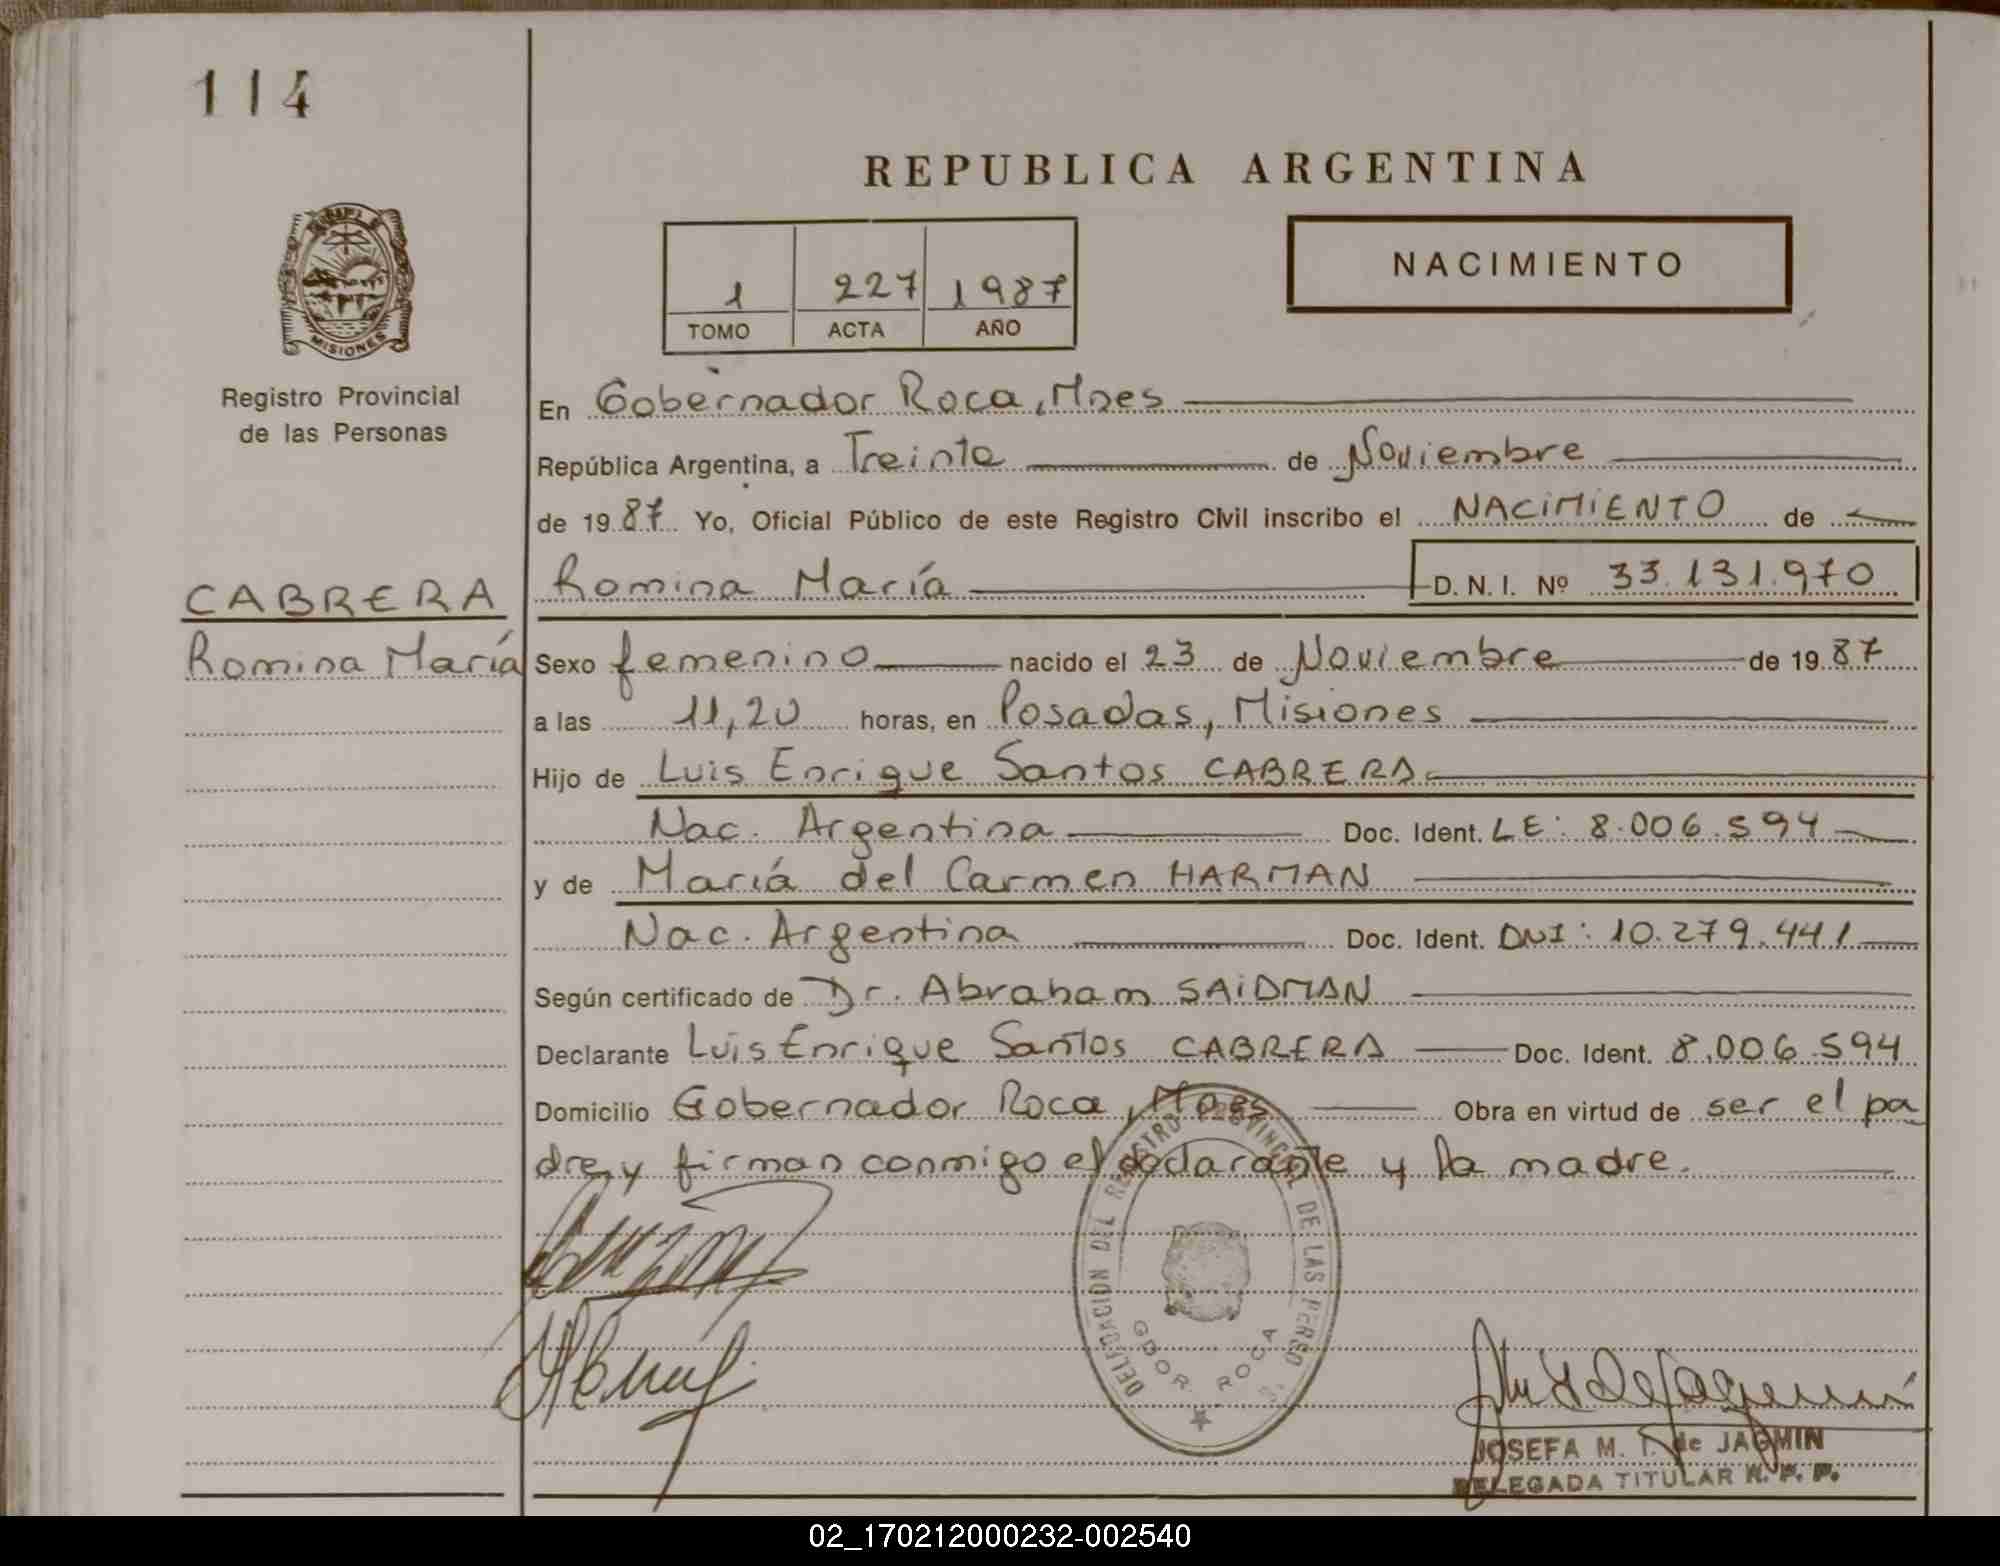 114
REPUBLICA ARGENTINA
MISIONES
Registro Provincial
de las Personas
1 227 1987
TOMO ACTA AÑO
NACIMIENTO
En Gobernador Roca, Mnes
República Argentina, a Treinta de Noviembre
de 1987 Yo, Oficial Público de este Registro Civil inscribo el NACIMIENTO de
CABRERA
Romina María
Romina María D. N. I. Nº 33.131.970
Sexo femenino nacido el 23 de Noviembre de 1987
a las 11,20 horas, en Posadas, Misiones
Hijo de Luis Enrique Santos CABRERA
Nac. Argentina Doc. Ident. LE: 8.006.594
y de María del Carmen HARMAN
Nac. Argentina Doc. Ident. DNI: 10.279.441
Según certificado de Dr. Abraham SAIDMAN
Declarante Luis Enrique Santos CABRERA Doc. Ident. 8.006.594
Domicilio Gobernador Roca, Mnes Obra en virtud de ser el pa
dre, y firman conmigo el declarante y la madre.
DELEGACION DEL REGISTRO PROVINCIAL DE LAS PERSONAS
GDOR. ROCA
JOSEFA M. T. de JAGMIN
DELEGADA TITULAR R. P. P.
02_170212000232-002540